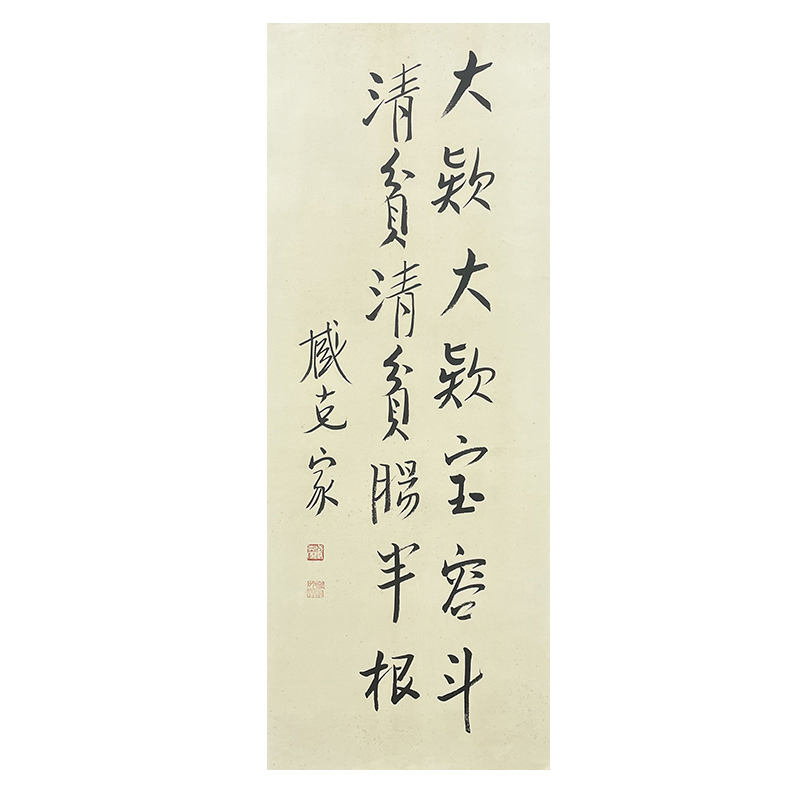 大欵大欵宝容斗
清貧清貧腸半根
臧克家